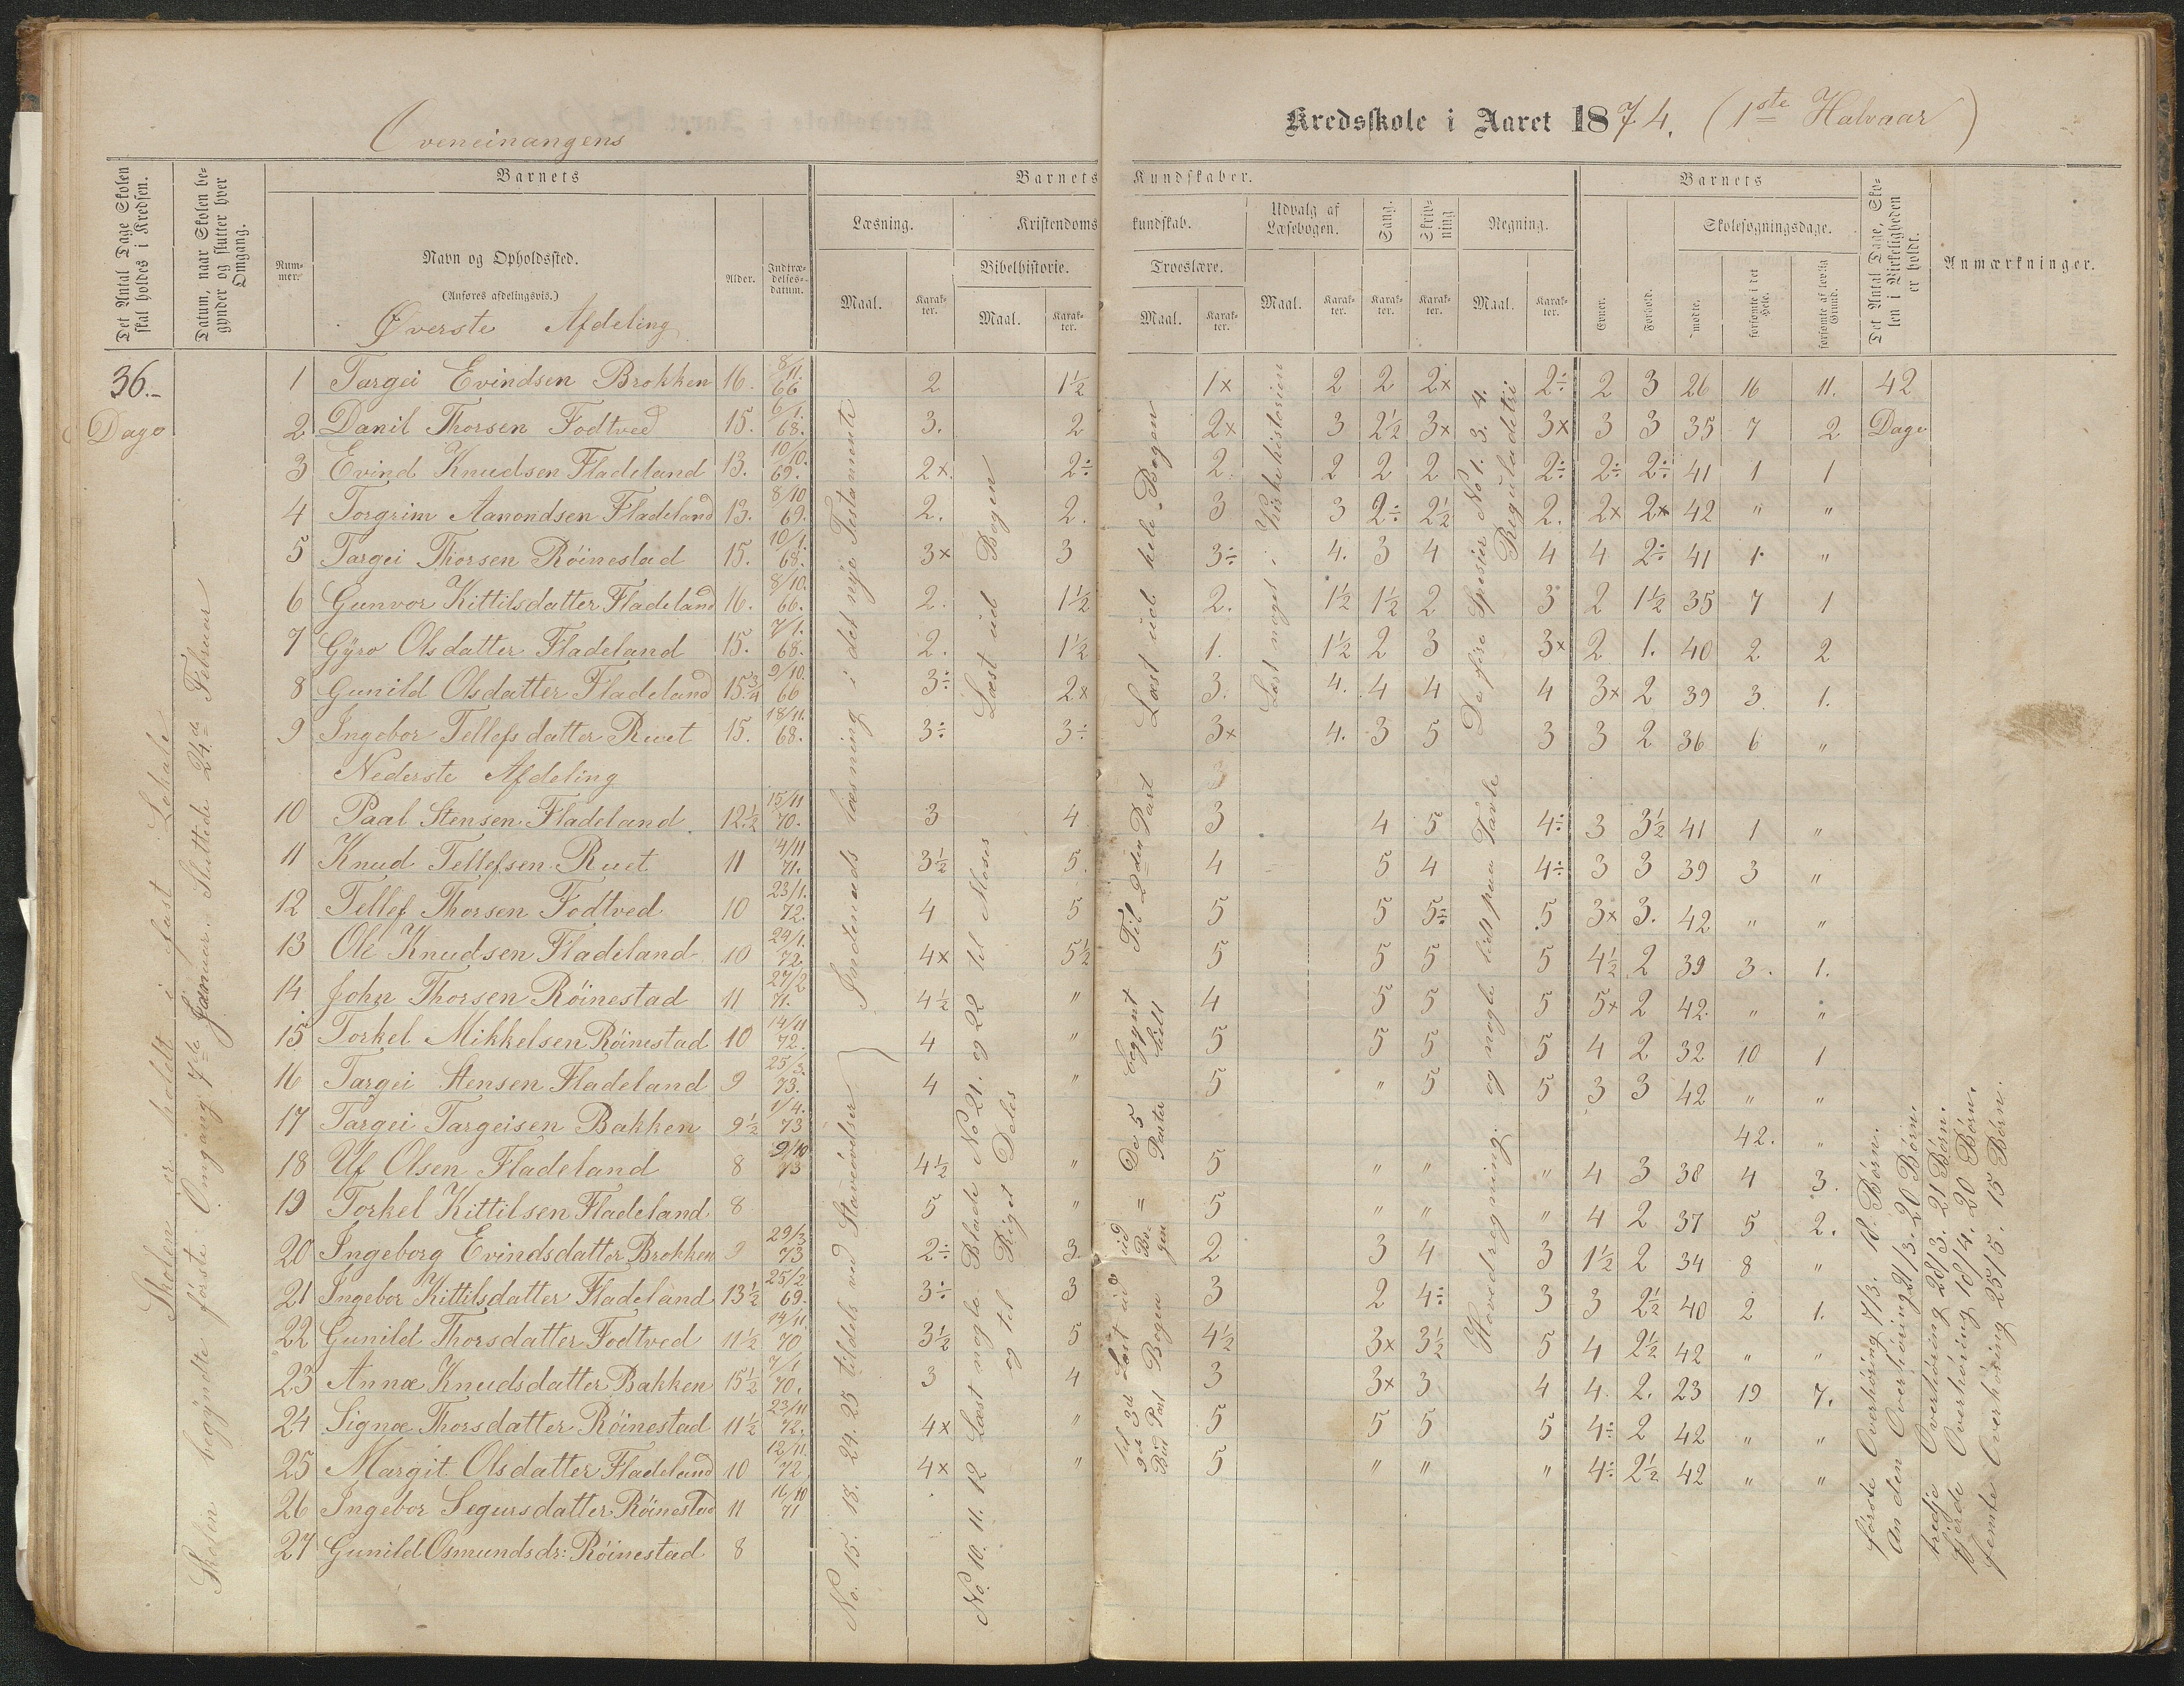 Oveneinangens
Kredsskole i Aaret 1874. (1ste Halvaar)
Det Antal Dage Skolen skal holdes i Kredsen.
Datum, naar Skolen begynder og slutter hver Omgang.
Barnets
Nummer.
Navn og Opholdssted.
(Anføres afdelingsvis.)
Alder.
Indtrædelsesdatum.
Barnets Kundskaber.
Læsning.
Kristendomskundskab.
Bibelhistorie.
Troeslære.
Udvalg af Læsebogen.
Sang.
Skrivning
Regning.
Maal. Karakter. Maal. Karakter. Maal. Karakter. Maal. Karakter. Karakter. Karakter. Maal. Karakter.
Barnets
Evner.
Forhold.
Skolesøgningsdage.
mødte.
forsømte i det Hele.
forsømte af lovlig Grund.
Det Antal Dage, Skolen i Virkeligheden er holdt.
Anmærkninger.
Øverste Afdeling
36.- Dage
42 Dage
1 Targei Evindsen Brokken 16. 8/11 66 2 1½ 1x 2 2 2x 2÷ 2 3 26 16 11.
2 Danil Thorsen Fodtved 15. 6/1. 68. 3. 2 2x 3 2½ 3x 3x 3 3 35 7 2
3 Evind Knudsen Fladeland 13. 10/10. 69. 2x. 2÷ 2. 2 2 2 2÷ 2÷ 2÷ 41 1 1
4 Torgrim Aanondsen Fladeland 13. 8/10 69. 2. 2. 3 3 2÷ 2½ 2. 2x 2x 42 " "
5 Targei Thorsen Röinestad 15. 10/1. 68. 3x 3 3÷ 4. 3 4 4 4 2÷ 41 1 "
6 Gunvor Kittilsdatter Fladeland 16. 8/10. 66. 2. 1½ 2. 1½ 1½ 2 3 2 1½ 35 7 1
7 Gyro Olsdatter Fladeland 15. 7/1. 68. 2. 1½ 1. 1½ 2 3 3x 2 1. 40 2 2
8 Gunild Olsdatter Fladeland 15.¾ 9/10. 66 3÷ 2x 3. 4. 4 4 4 3x 2 39 3 1.
9 Ingebor Tellefsdatter Ruet 15. 18/11. 68. 3÷ 3÷ 3x 4. 3 5 3 3 2 36 6 "
Nederste Afdeling 3
10 Paal Stensen Fladeland 12.½ 15/11 70. 3 4 3 4 5 4÷ 3 3½ 41 1 "
11 Knud Tellefsen Ruet 11 14/11 71. 3½ 5. 4 5 4 4÷ 3 3 39 3 "
12 Tellef Thorsen Fodtved 10 23/1. 72. 4 5 5 5 5÷ 5 3x 3. 42 " "
13 Ole Knudsen Fladeland 10 29/1. 72 4x 5½ 5 5 5 5 4½ 2 39 3. 1.
14 John Thorsen Röinestad 11 27/2 71. 4½ " 4 5 5 5 5x 2 42. " "
15 Torkel Mikkelsen Röinestad 10 14/11 72. 4 " 5 5 5 5 4 2 32 10 1
16 Targei Stensen Fladeland 9 25/3. 73. 4 " 5 " 5 5 3 3 42 " "
17 Targei Targeisen Bakken 9½ 1/4. 73 42. "
18 Uf Olsen Fladeland 8 9/10 73 4½ " 5 " " " 4 3 38 4 3.
19 Torkel Kittilsen Fladeland 8 5 " 5 " " " 4 2 37 5 2.
20 Ingeborg Evindsdatter Brokken 9 29/3 73 2÷ 3. 2 3 4 3 1½ 2 34 8 "
21 Ingebor Kittilsdatter Fladeland 13½ 25/2 69. 3÷ 3 3 2 4÷ 3 3 2½ 40 2 1.
22 Gunild Thorsdatter Fodtved 11½ 14/11. 70 3½ 5 4½ 3x 3½ 5 4 2½ 42 " "
23 Annæ Knudsdatter Bakken 15½ 7/1 70. 3 4 3 3x 3 4 4. 2. 23 19 7.
24 Signæ Thorsdatter Röinestad 11½ 23/11 72. 4x " 5 5 5 5 4÷ 2 42 " "
25 Margit Olsdatter Fladeland 10 12/11. 72 4x " 5 " " " 4÷ 2½ 42 " "
26 Ingebor Segursdatter Röinestad 11 16/10 71
27 Gunild Osmundsdr: Röinestad 8
Skolen er holdt i fast Lokale
Skolen begyndte förste Omgang 7de Januar. Sluttede 24.de Februar
Indenads læsning i det nye Testamente
No. 15. 18. 24. 25 tildels ved Staveövelser
Læst ud Bogen
No. 10. 11. 12 Læst nogle Blade No 21. og 22 til Moses
og til Riget Deles
Læst ud hele Bogen
Til 2den Part
De 5 Parter
Læst ud Bogen
Læst noget i Kirkehistorien
De fire Spesier No 1. 3. 4. Reguladetri
Hovedregning. og nogle lidt paa Tavle
förste Overhöring 7/3. 18. Börn.
An den Overhöring 21/3. 20 Börn.
tredje Overhöring 28/3. 21 Börn.
fjerde Overhöring 18/4. 20 Börn.
femte Overhöring 25/5. 15 Börn.